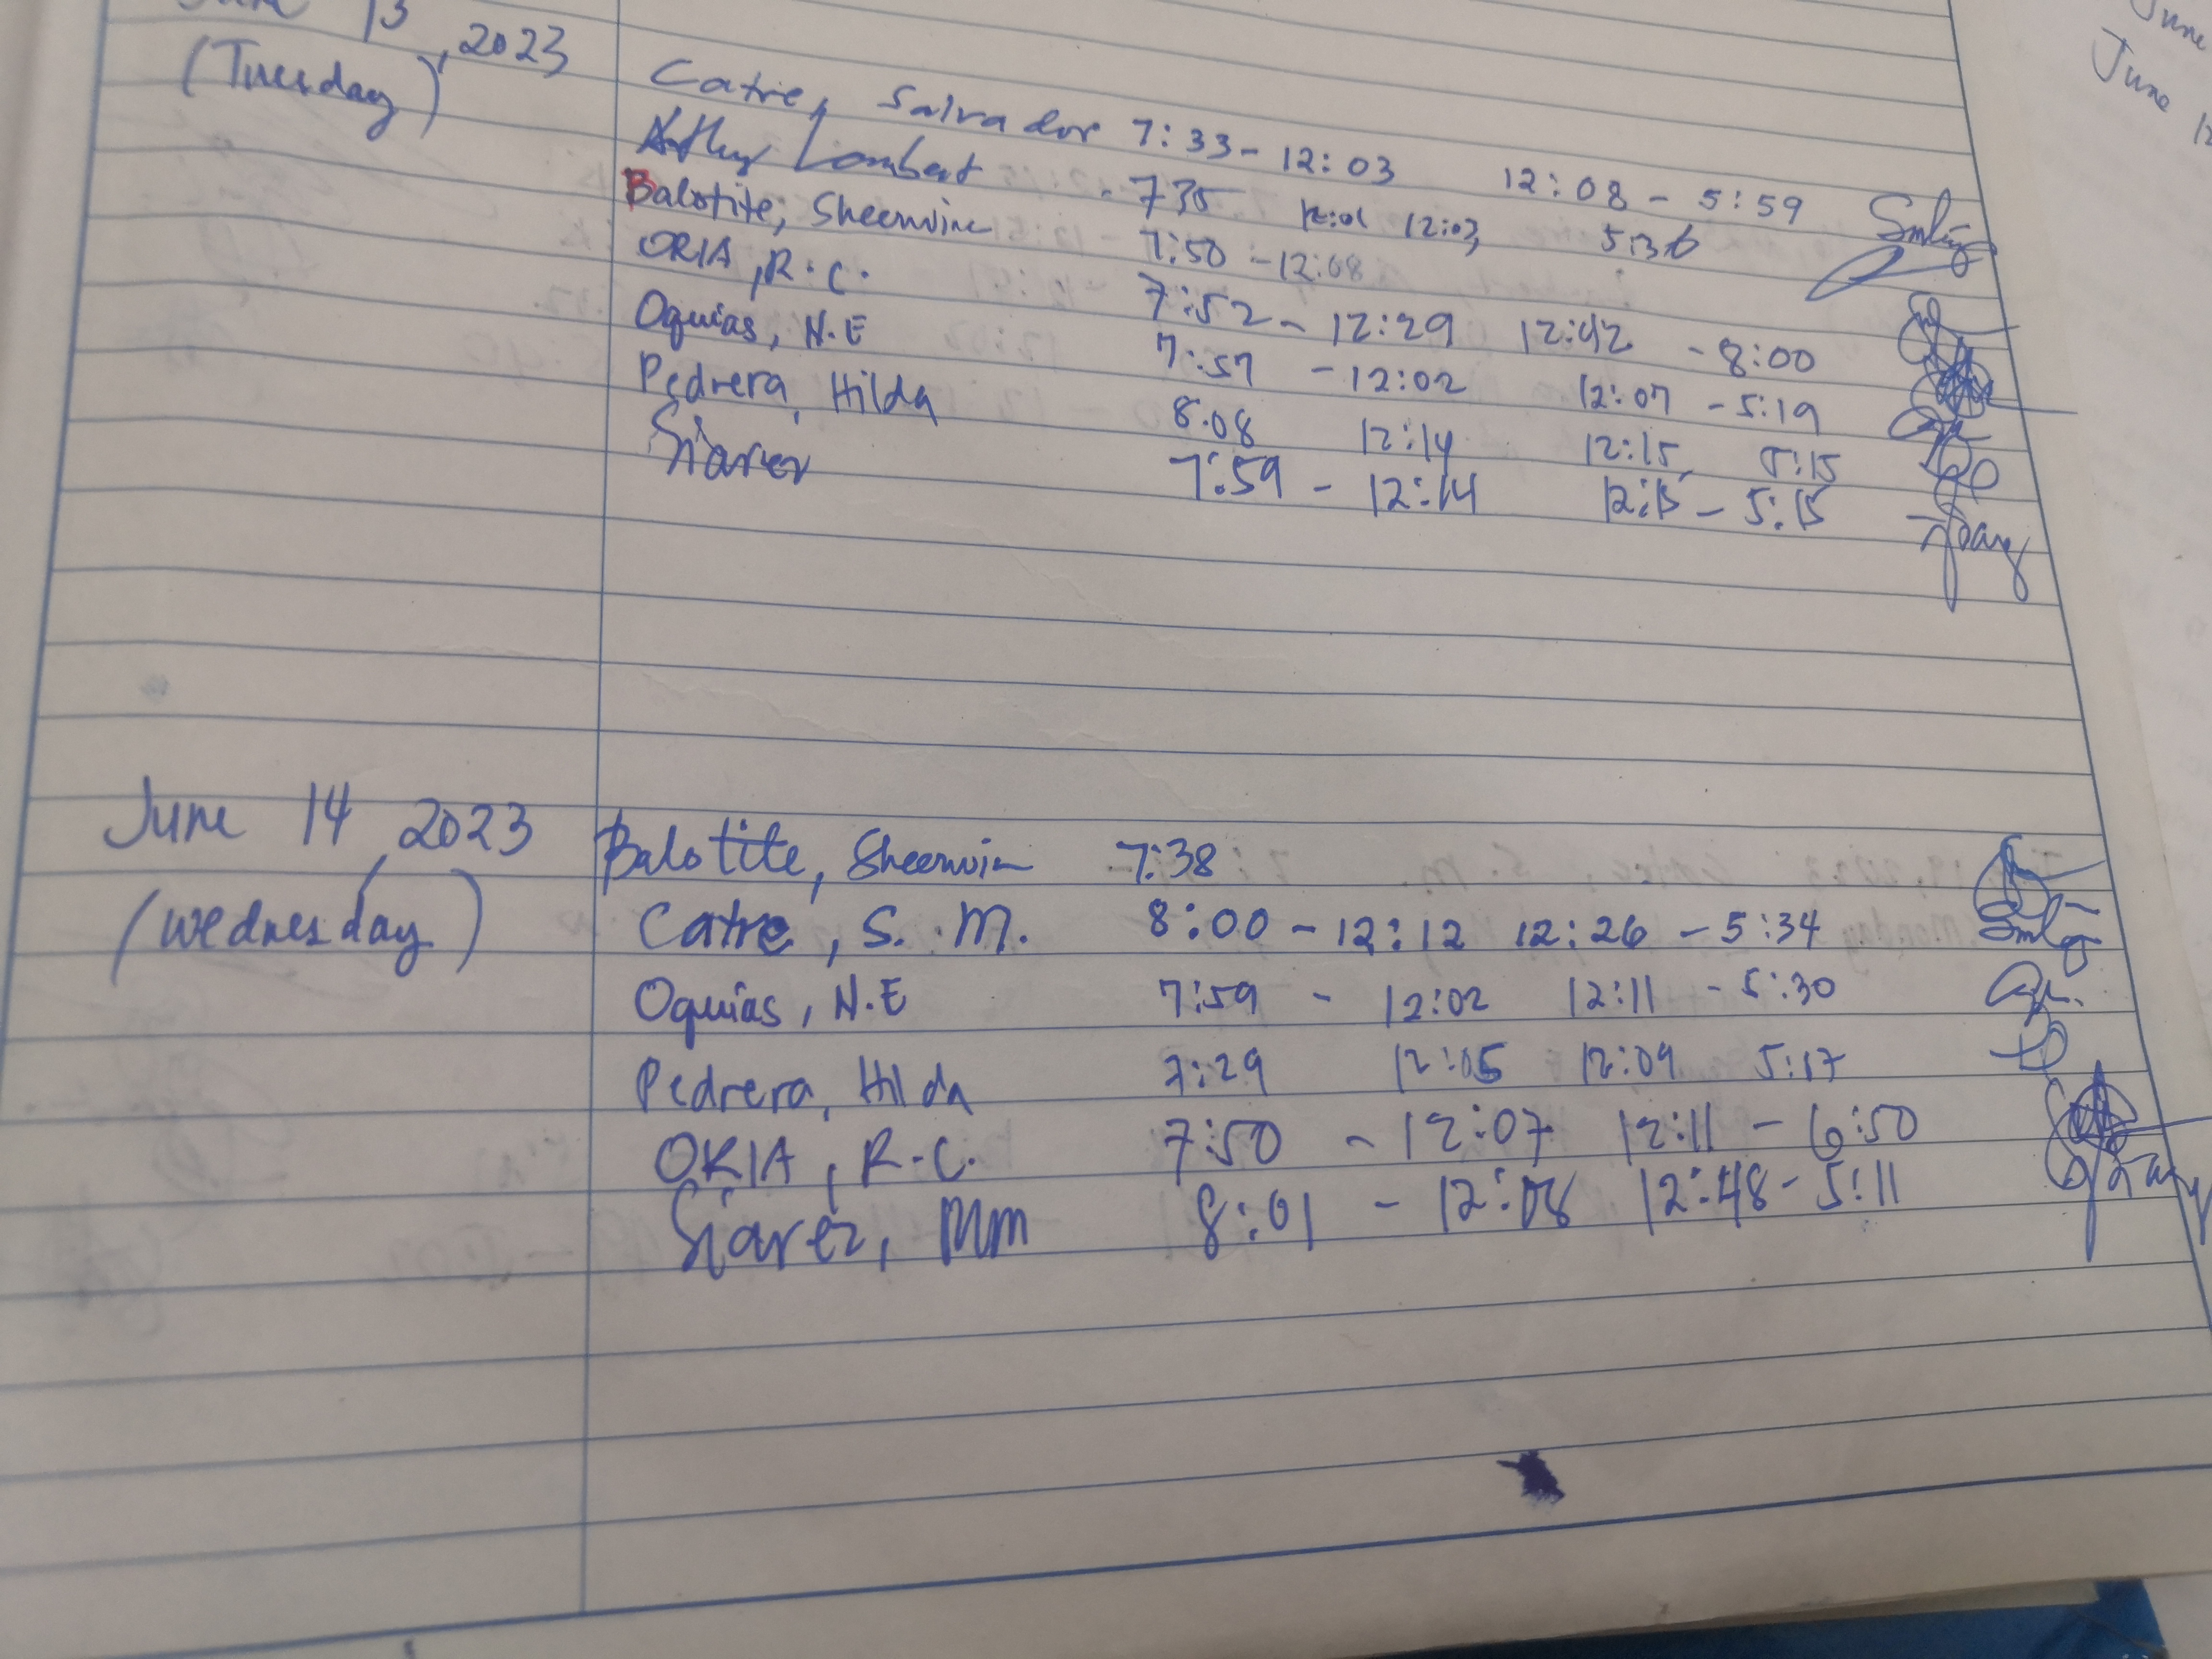 June 13, 2023
(Tuesday)
Catre, Salvador 7:33 - 12:03 12:08 - 5:59
Lambert - 735 12:01 12:03 5:36
Balotite, Sheerwin 7:50 - 12:08
ORIA, R.C. 7:52 - 12:29 12:42 - 8:00
Oquias, N.E 7:57 - 12:02 12:07 - 5:19
Pedrera, Hilda 8:08 12:14 12:15 5:15
Siarez 7:59 - 12:14 12:15 - 5:15
June 14, 2023
(Wednesday)
Balotite, Sheerwin 7:38
Catre, S.M. 8:00 - 12:12 12:26 - 5:34
Oquias, N.E 7:59 - 12:02 12:11 - 5:30
Pedrera, Hilda 7:29 12:05 12:09 5:17
ORIA, R.C. 7:50 - 12:07 12:11 - 6:50
Siarez, MM 8:01 - 12:08 12:48 - 5:11
June
June 12